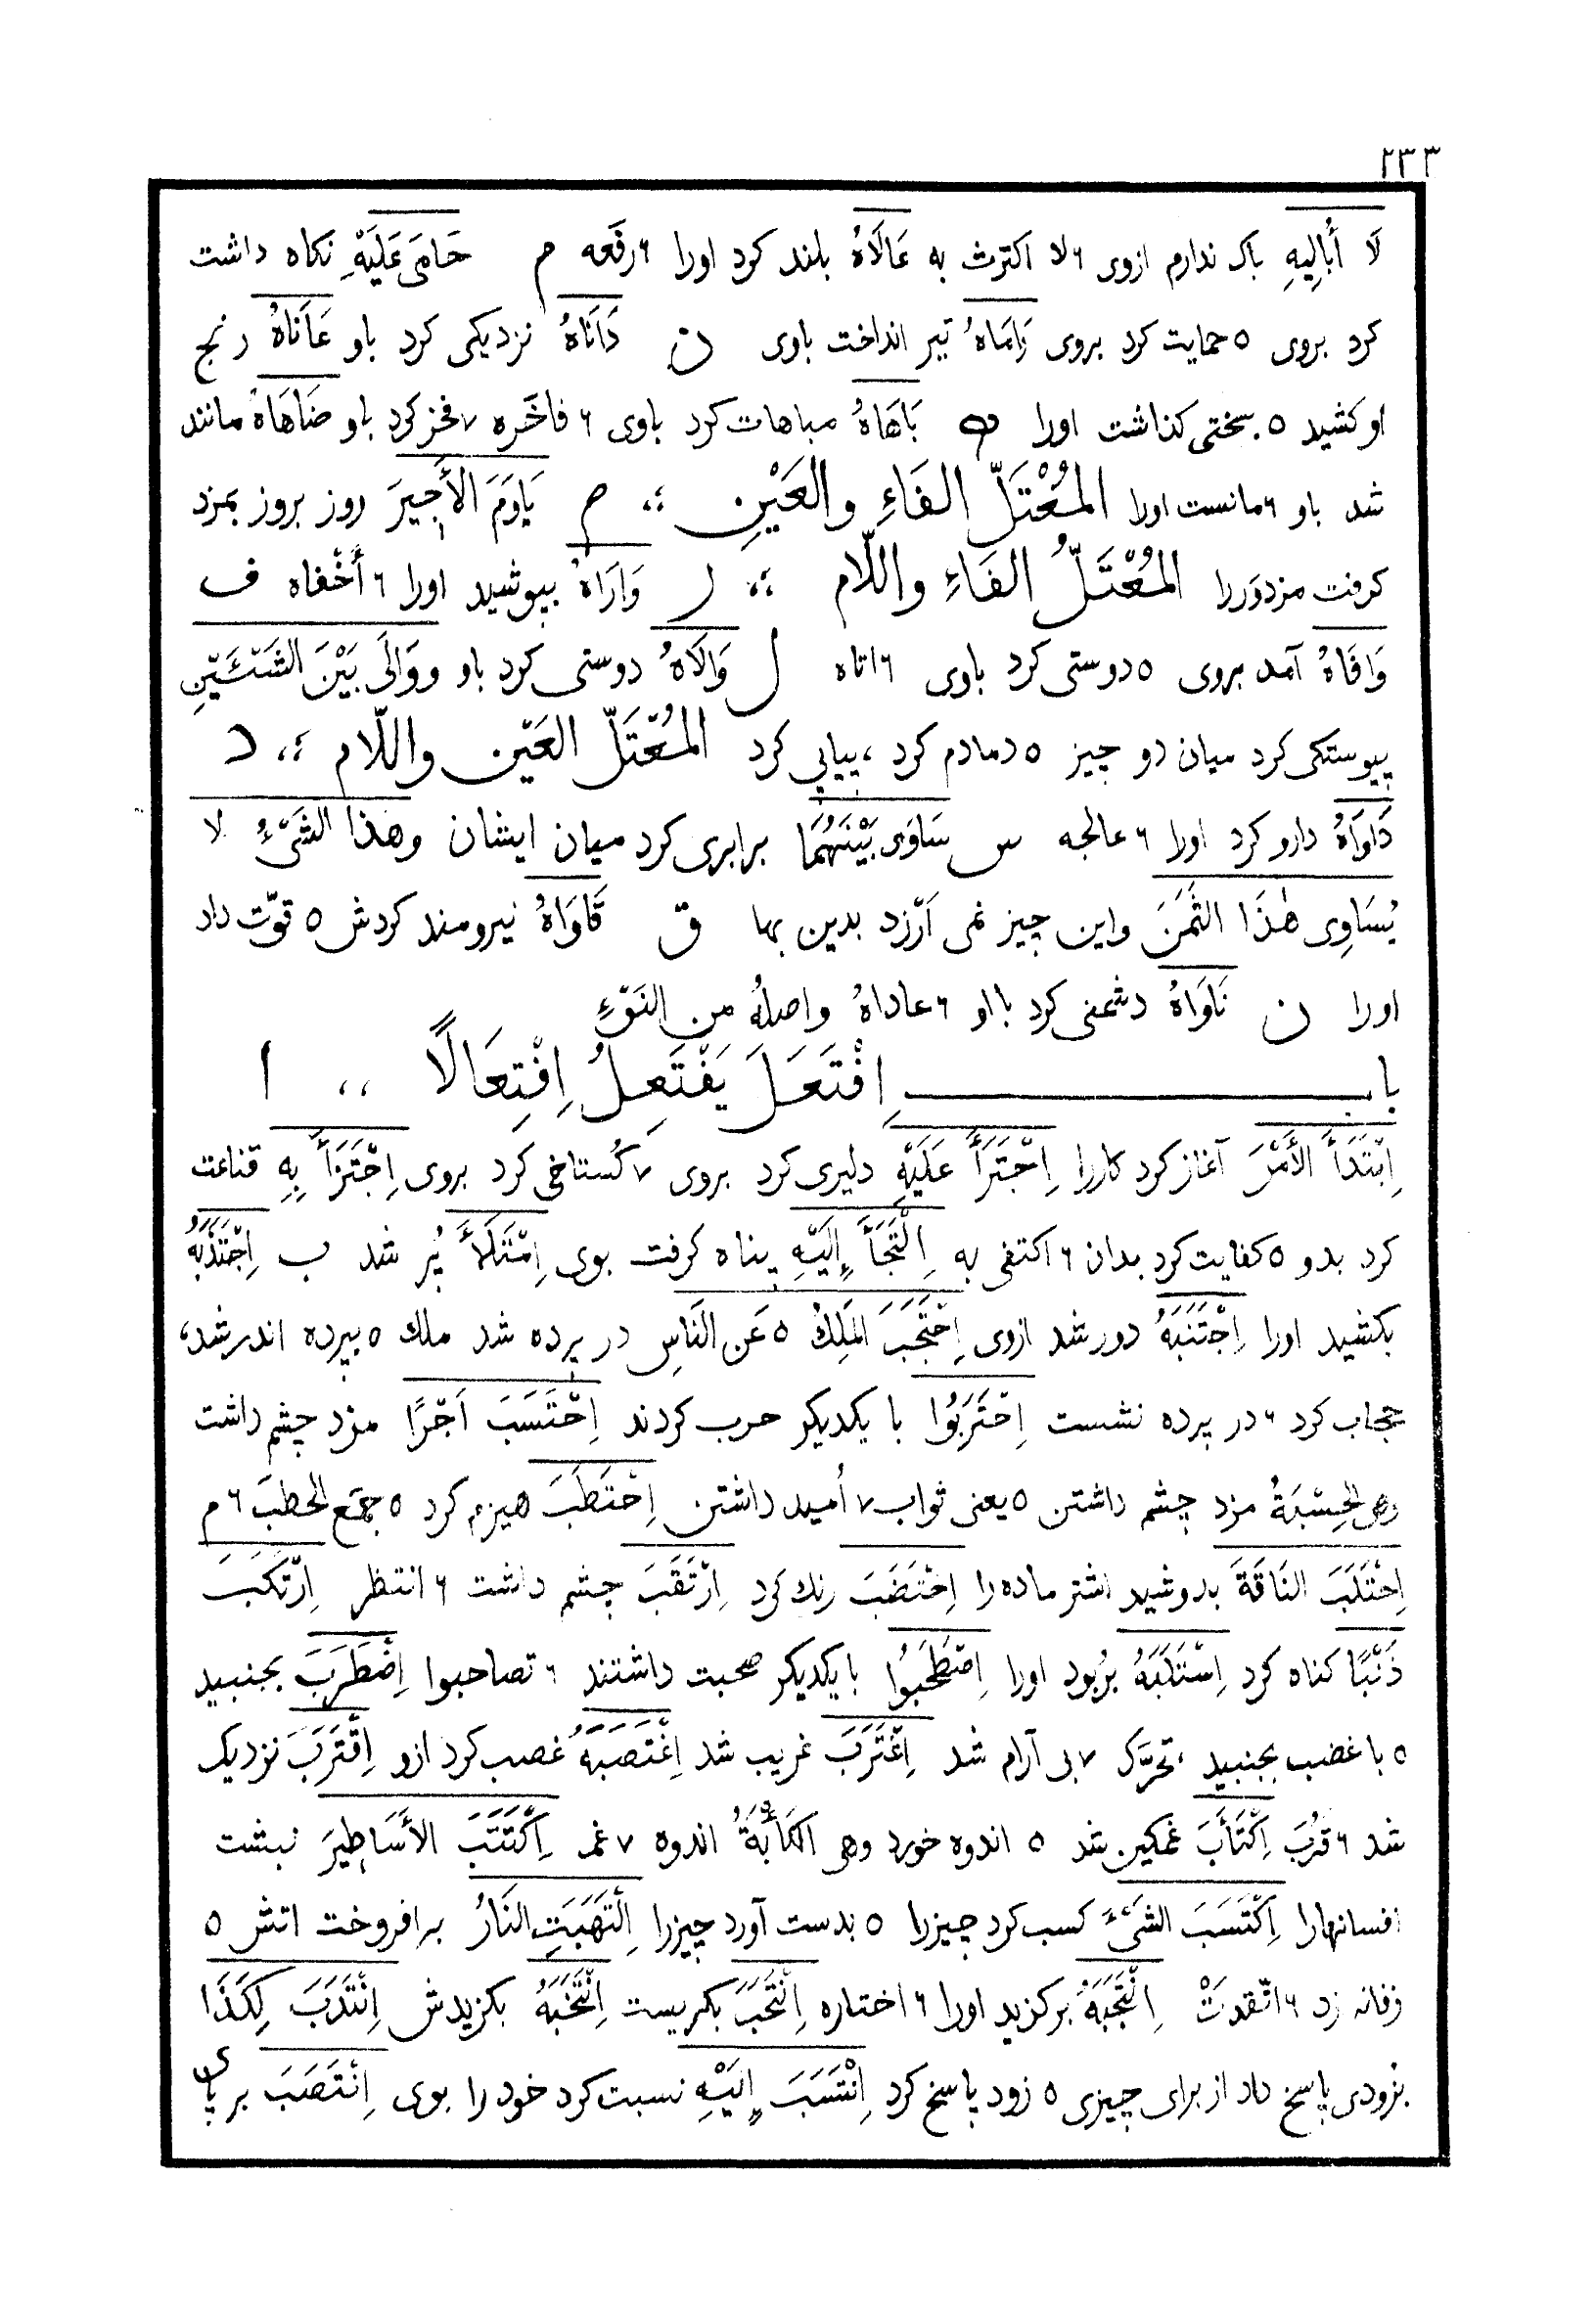 ٢٣٣
لَا أُبَالِيهِ باک ندارم ازوی ٦ لا اکترث به عَالَاهُ بلند کرد اورا ٦ رفَعه م حَامَی عَلَیْهِ نکاه داشت
کرد بروی ٥ حمایت کرد بروی رَامَاهُ تیر انداخت باوی ن دَانَاهُ نزدیکی کرد باو عَانَاهُ رنج
او کشید ٥ بسختی کذاشت اورا ه بَاهَاهُ مباهات کرد باوی ٦ فاخَره ٧ فخز کرد باو ضَاهَاهُ مانند
شد باو ٦ مانست اورا المُعْتَلّ الفَاءِ والعَیْنِ ؛، م یَاوَمَ الأَجِیرَ روز بروز بمزد
کرفت مزدوررا المُعْتَلُّ الفَاءِ واللّام ؛، ر وَارَاهُ بپوشید اورا ٦ أَخْفاه ف
وَافَاهُ آمد بروی ٥ دوستی کرد باوی ٦ اتاه ل وَالَاهُ دوستی کرد باو ووَالَی بَیْنَ الشَیْئَیْنِ
پیوستکی کرد میان دو چیز ٥ دمادم کرد ، پیاپی کرد المُعْتَلّ العَیْن واللّام ؛، د
دَاوَاهُ دارو کرد اورا ٦ عالجه س سَاوَی بَیْنَهُمَا برابری کرد میان ایشان وهذا الشَیْءُ لا
یُسَاوِی هٰذَا الثَمَنَ واین چیز نمی اَرْزد بدین بها ق قَاوَاهُ نیرومند کردش ٥ قوّت داد
اورا ن نَاوَاهُ دشمنی کرد بااو ٦ عاداهُ واصلهُ من النَوْءِ
باب اِفْتَعَلَ یَفْتَعِلُ اِفْتِعَالًا ،، ا
اِبْتَدَأَ الأَمْرَ آغاز کرد کاررا اِجْتَرَأَ عَلَیْهِ دلیری کرد بروی ٧ کُستاخی کرد بروی اِجْتَزَأَ بِهِ قناعت
کرد بدو ٥ کفایت کرد بدان ٦ اکتفی به اِلْتَجَأَ إِلَیْهِ پناه کرفت بوی اِمْتَلَأَ پُر شد ب اِجْتَذَبَهُ
بکشید اورا اِجْتَنَبَهُ دور شد ازوی اِحْتَجَبَ المَلِكُ ٥ عَن النَاسِ در پرده شد ملك ٥ بپرده اندر شد،
حجاب کرد ٦ در پرده نشست اِحْتَرَبُوا با یکدیکر حرب کردند اِحْتَسَبَ اَجْرًا مزد چشم داشت
وهی الحِسْبَةُ مزد چشم داشتن ٥ یعنی ثواب ٧ اُمید داشتن اِحْتَطَبَ هیزم کرد ٥ جمَع الحطبَ ٦ م
اِحْتَلَبَ النَاقَةَ بدوشید اشتر ماده را اِخْتَضَبَ رنك کرد اِرْتَقَبَ چشم داشت ٦ انتظر اِرْتَکَبَ
ذَنْبًا کناه کرد اِسْتَلَبَهُ برُبود اورا اِصْطَحَبُوا با یکدیکر صحبت داشتند ٦ تصاحبوا اِضْطَرَبَ بجنبید
٥ با غضب بجنبید ، تحرّک ٧ بی آرام شد اِغْتَرَبَ غریب شد اِغْتَصَبَهُ غصب کرد ازو اِقْتَرَبَ نزدیک
شد ٦ قَرُبَ اِکْتَأَبَ غمکین شد ٥ اندوه خورد وهی الکَأْبَةُ اندوه ٧ غم اِکْتَتَبَ الأَسَاطِیرَ نبشت
افسانهارا اِکْتَسَبَ الشَیْءَ کسب کرد چیزرا ٥ بدست آورد چیزرا اِلْتَهَبَتِ النَارُ برافروخت اتش ٥
زفانه زد ٦ اتّقدتْ اِنْتَجَبَهُ برکزید اورا ٦ اختاره اِنْتَحَبَ بکریست اِنْتَخَبَهُ بکزیدش اِنْتَدَبَ لِکَذَا
بزودی پاسخ داد از برای چیزی ٥ زود پاسخ کرد اِنْتَسَبَ إِلَیْهِ نسبت کرد خود را بوی اِنْتَصَبَ بر پای